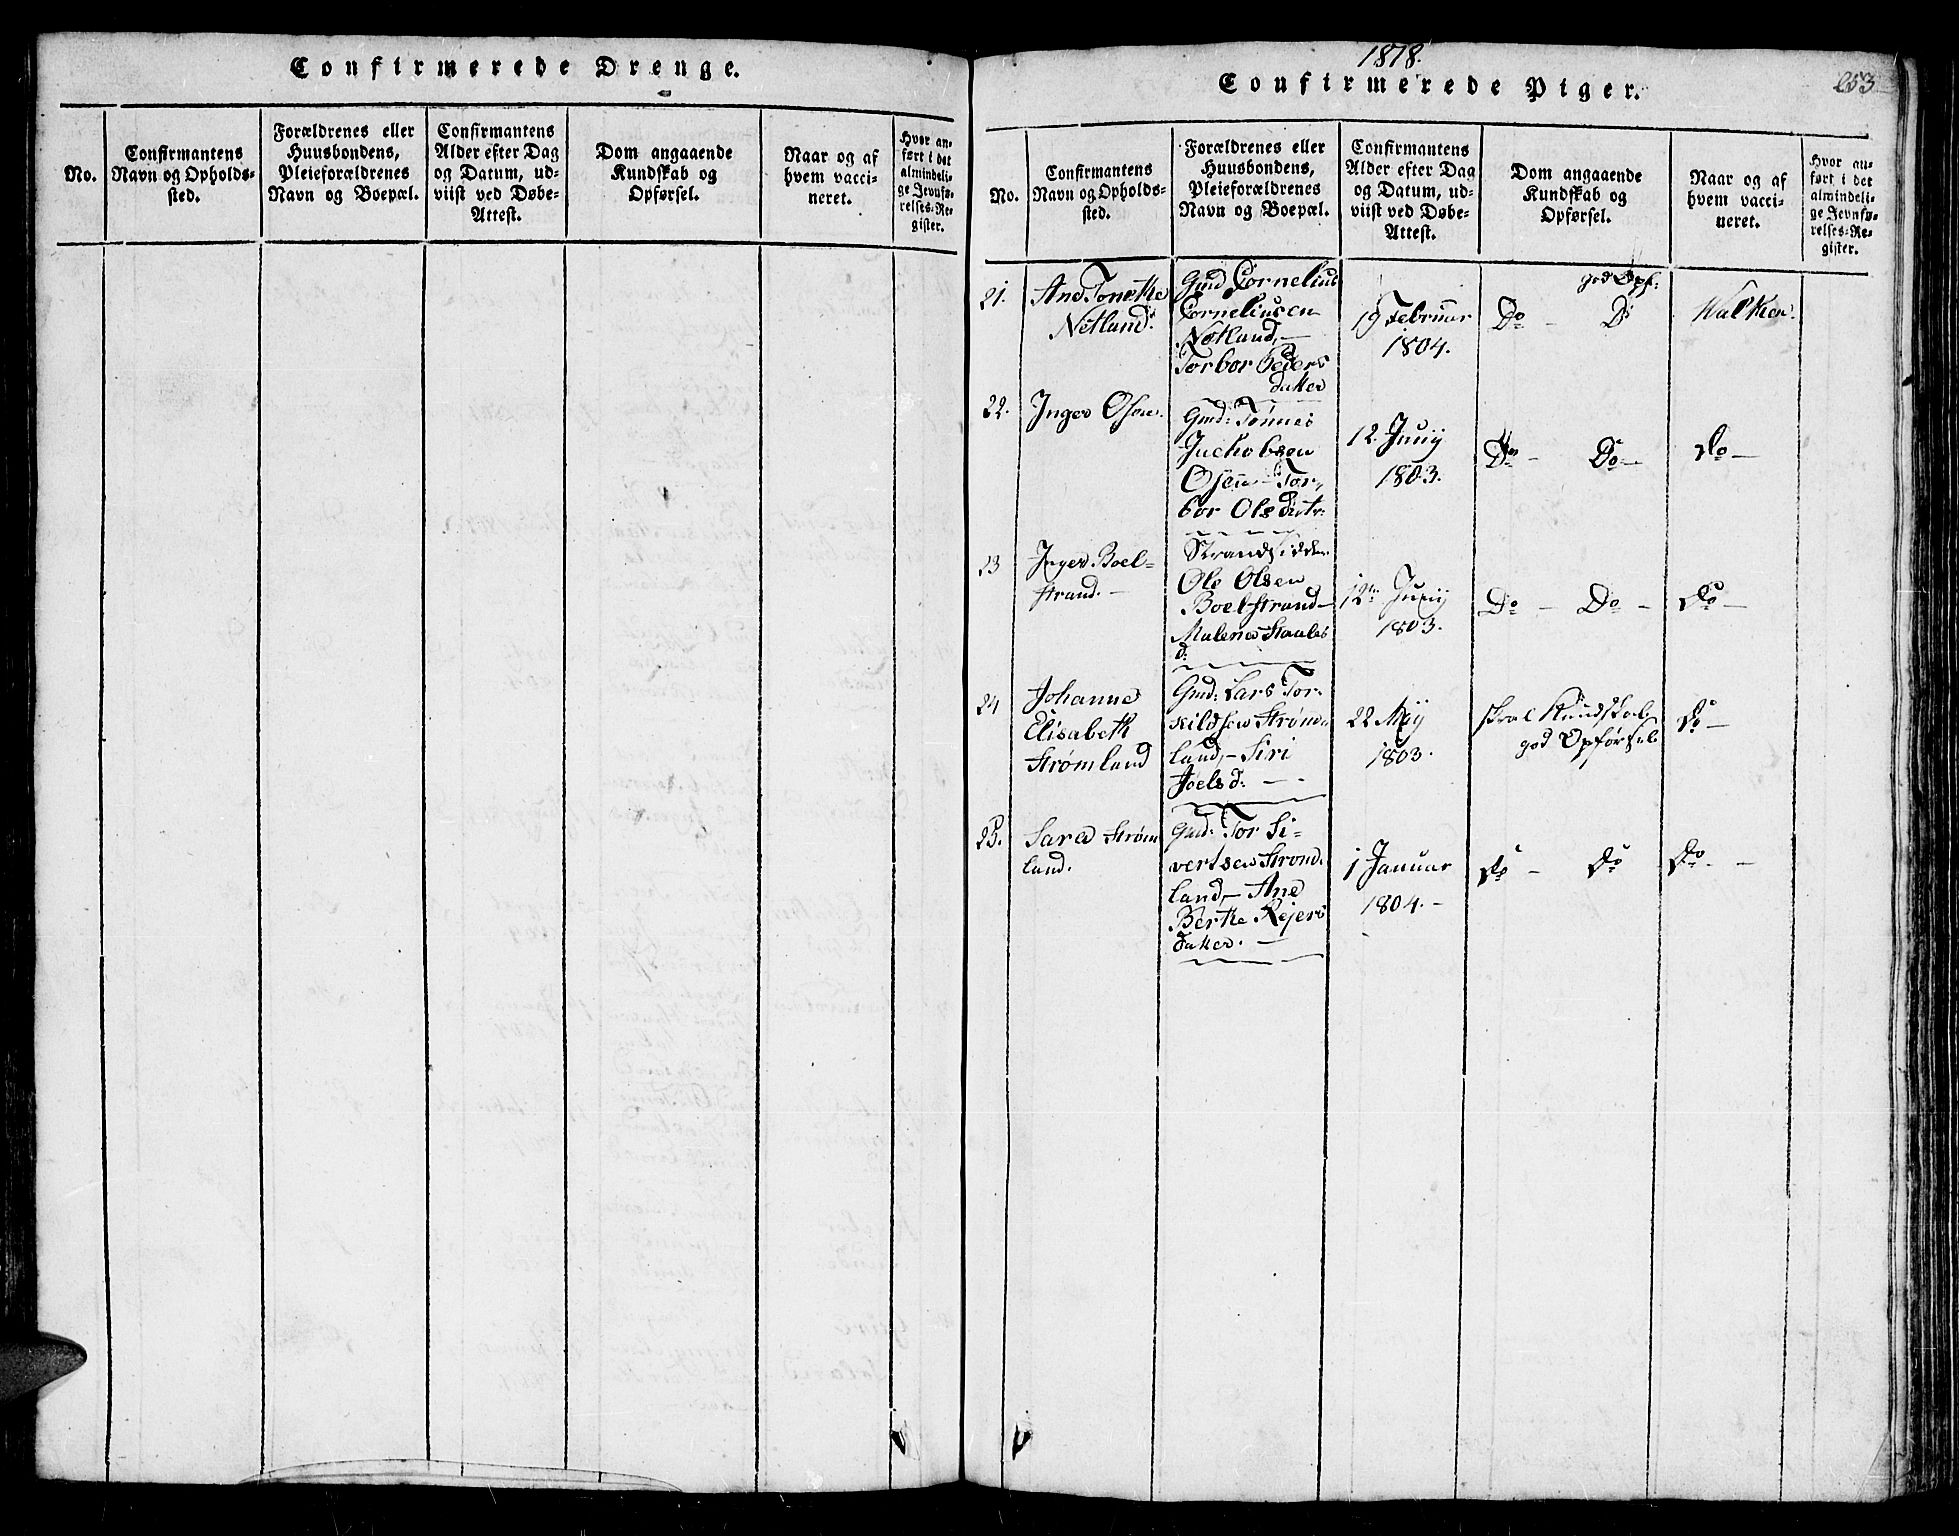 Confirmerede Drenge.
No.
Confirmantens
Navn og Opholds-
sted.
Forældrenes eller
Huusbondens,
Pleieforældrenes
Navn og Boepæl.
Confirmantens
Alder efter Dag
og Datum, ud-
viist ved Døbe-
Attest.
Dom angaaende
Kundskab og
Opførsel.
Naar og af
hvem vacci-
neret.
Hvor an-
ført i det
almindeli-
ge Jevnfø-
relses-Re-
gister.
1818.
Confirmerede Piger.
253
No.
Confirmantens
Navn og Opholds-
sted.
Forældrenes eller
Huusbondens,
Pleieforældrenes
Navn og Boepæl.
Confirmantens
Alder efter Dag
og Datum, ud-
viist ved Døbe-
Attest.
Dom angaaende
Kundskab og
Opførsel.
Naar og af
hvem vacci-
neret.
Hvor an-
ført i det
almindeli-
ge Jevnfø-
relses-Re-
gister.
21.
Ane Tonethe
Netland.
Gmd Cornelius
Corneliusen
Netland, —
Torbor Peders
datter
19 Februar
1804.
god Opf:
Do — Do
22.
Inger Osen.
Gmd: Tønnes
Jachobsen
Osen — Tor-
bor Olsdatr:
12. Junij
1803.
Do — Do —
Do —
23
Inger Boel-
strand. —
Strandsidder
Ole Olsen
Boelstrand —
Malene Staales
d:
12te Junij
1803.
Do — Do —
Do —
24
Johanne
Elisabeth
Strømland
Gmd: Lars Tor-
kildsen Strøm-
land, — Siri
Joelsd: —
22 Maij
1803.
skral Kundskab
god Opførsel
Do —
25.
Sara Strøm
land.
Gmd: Tor Si-
vertsen Strøm-
land, — Ane
Berthe Rejers
datter. —
1 Januar
1804. —
Do — Do
Do. —